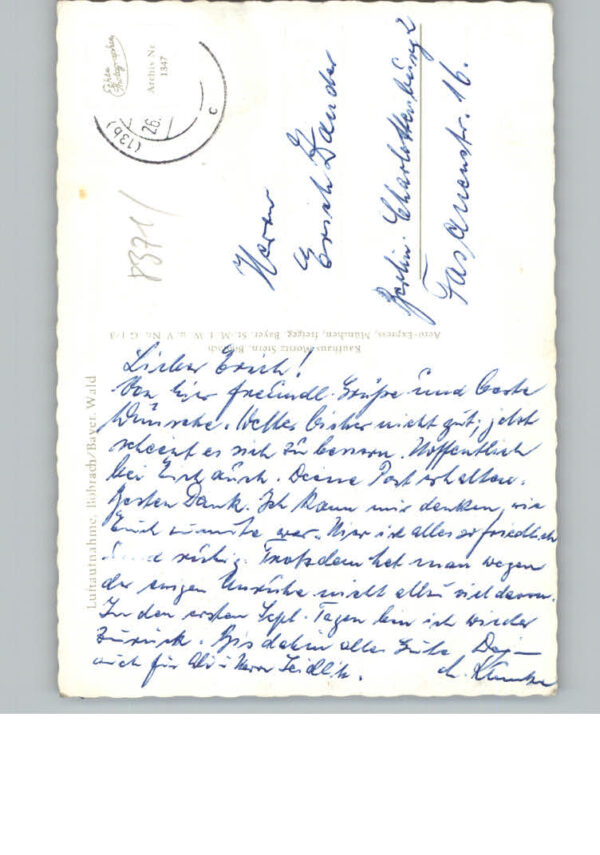 Echte
Photographie
Archiv Nr.
1347
(13b)
26.
c
8371/
Herrn
Erich Zander
Berlin-Charlottenburg 2
Fasanenstr. 16.
Kaufhaus Moritz Stern, Bobrach
Aero-Express, München, freigeg. Bayer. St. M. f. W. u. V. No. G 1/3
Luftaufnahme, Bobrach/Bayer. Wald
Lieber Erich!
Von hier freundl. Grüße und beste
Wünsche. Wetter bisher nicht gut, jetzt
scheint es sich zu bessern. Hoffentlich
bei Euch auch. Deine Post erhalten.
Besten Dank. Ich kann mir denken, wie
Euch zumute war. Hier ist alles so friedlich
und ruhig. Trotzdem hat man wegen
der ewigen Unruhe nicht allzu viel davon.
In den ersten Sept. Tagen bin ich wieder
zurück. Bis dahin alles Gute,
auch für u. Herrn Seidlitz.